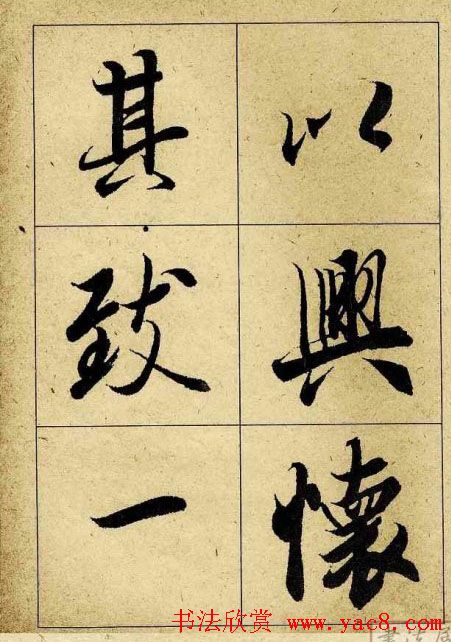 以興懷
其致一
书法欣赏 www.yac8.com